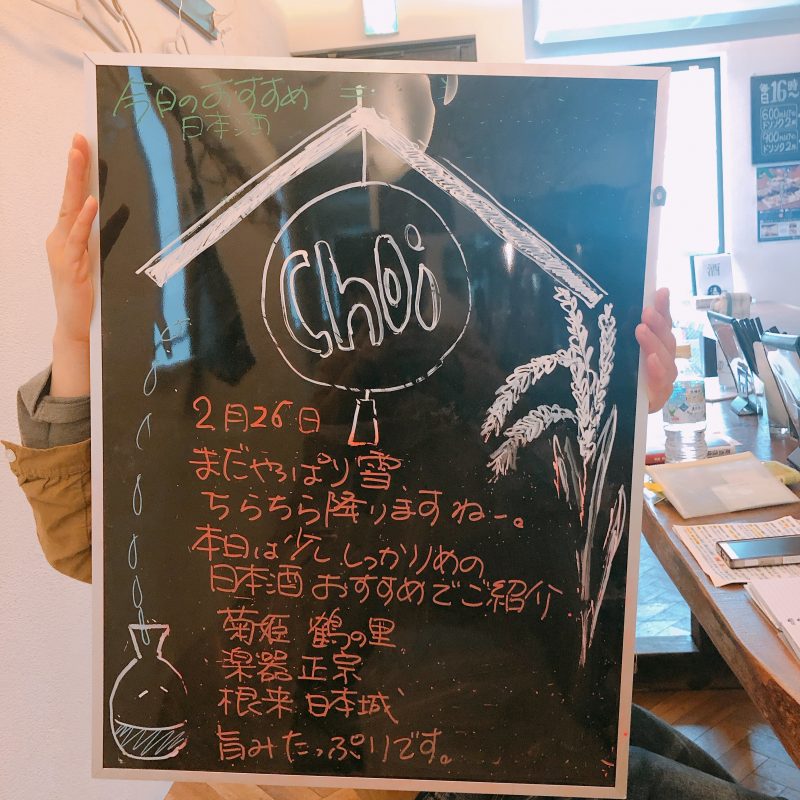 今日のおすすめ
日本酒
choi
2月26日
まだやっぱり雪、
ちらちら降りますねー。
本日は少ししっかりめの
日本酒おすすめでご紹介
菊姫 鶴の里
楽器正宗
根来 日本城、
旨みたっぷりです。
毎日16時〜